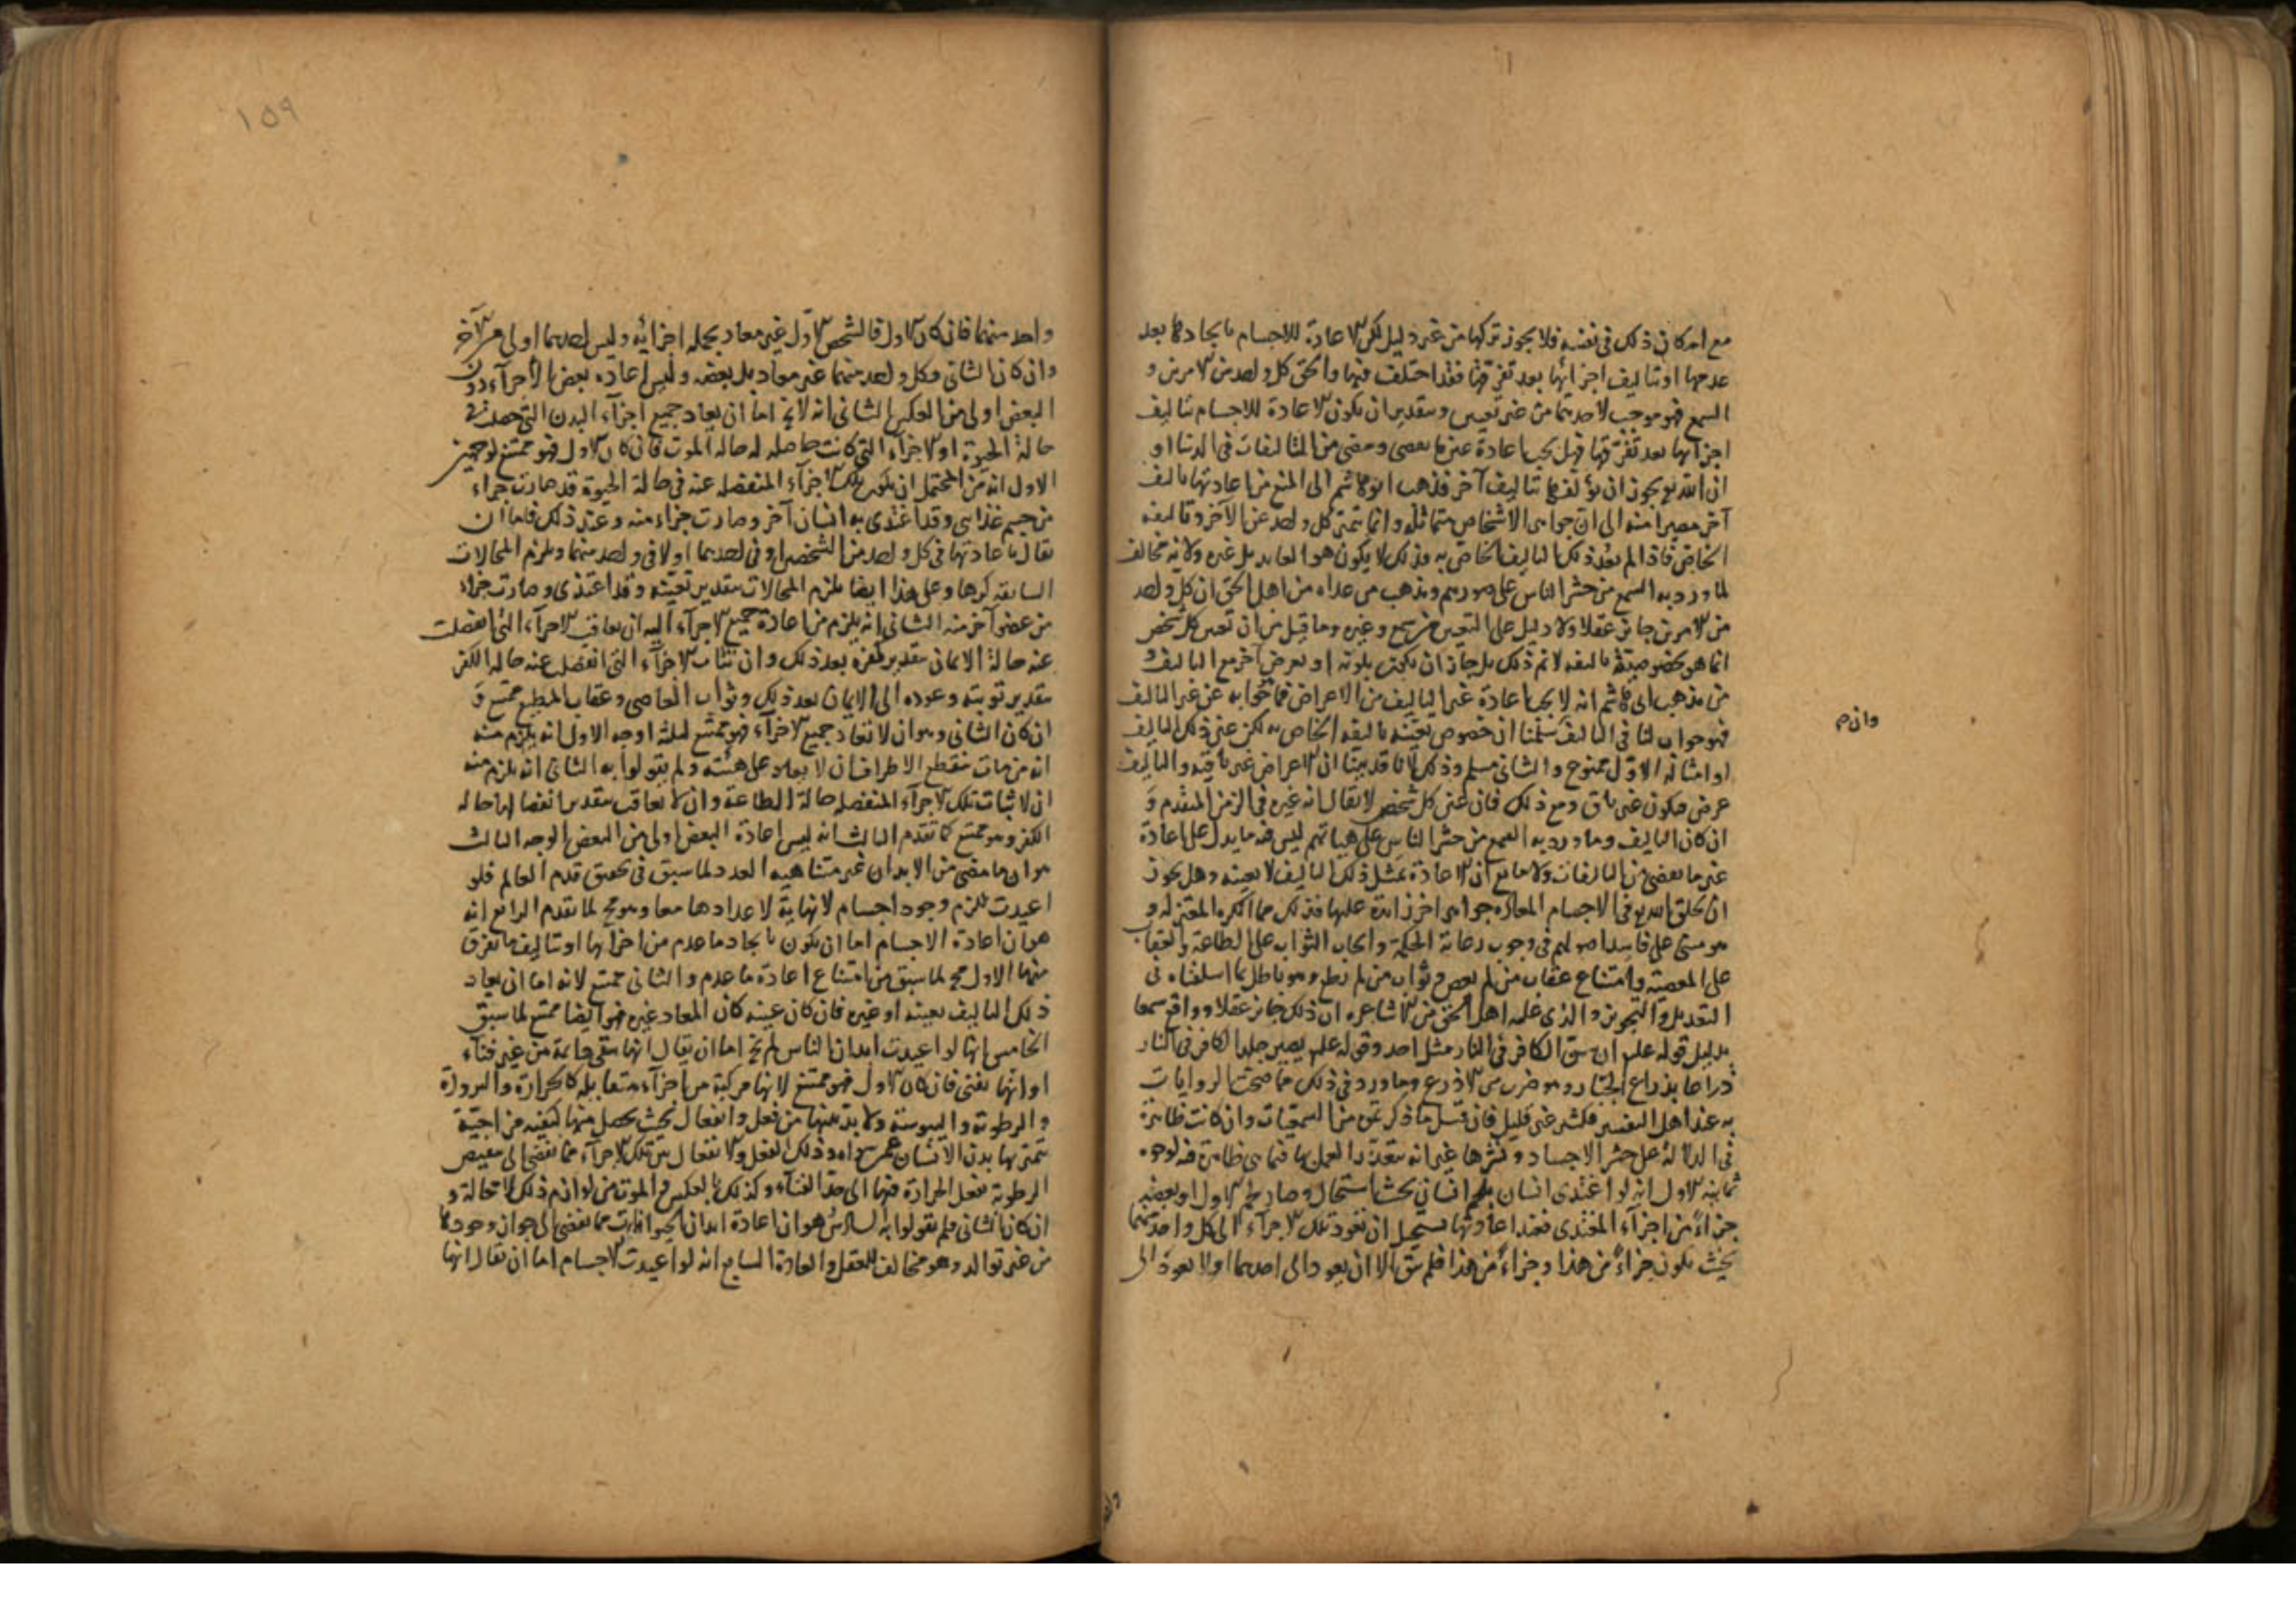 مع امكان ذلك في نفسه فلا يجوز تركها من غير دليل لكن الاعادة للاجسام بايجادها بعد
عدمها او تأليف اجزائها بعد تفرقها فقد اختلف فيها والحق كل واحد من الامرين و
السمع فهو موجب لاحدهما من غير تعيين وبتقدير ان يكون الاعادة للاجسام تاليف
اجزائها بعد تفرقها فهل يجب اعادة عين ما تقضى ومضى من التاليفات في الدنيا او
ان الله تع يجوز ان يؤلفها تاليف آخر فذهب ابو هاشم الى المنع من اعادتها بتاليف
آخر مصيرا منه الى ان جواهر الاشخاص متماثله وانما تتميز كل واحد عن الآخر وتاليفه
الخاص فاذا لم يعد ذلك التاليف الخاص به فذلك لا يكون هو العايد بل غيره ولانه مخالف
لما ورد به السمع من حشر الناس على صورهم ومذهب من عداه من اهل الحق ان كل واحد
من الامرين جايز عقلا ولا دليل على التعيين من سمع وغيره وما قيل من ان تعين كل شخص
انما هو بخصوصية تاليفه لانم ذلك بل جاز ان يكون بلونه او بعرض آخر مع التاليف
من مذهب ابي هاشم انه لا يجب اعادة غير التاليف من الاعراض فما هو جوابه عن غير التاليف
فهو جواب لنا في التاليف سلمنا ان خصوص تعينه تاليفه الخاص به لكن عين ذلك التاليف
او امثاله الاول ممنوع والثاني مسلم وذلك لانا قد بينا ان الاعراض غير باقيه والتاليف
عرض فيكون غير باق ومع ذلك فان عين كل شخص لا يقال انه غيره في الزمن المتقدم و
ان كان التاليف وما ورد به السمع من حشر الناس على هيئاتهم ليس فيه ما يدل على اعادة
عين ما تقضى من التاليفات ولا مانع ان الاعادة بمثل ذلك التاليف لا بعينه وهل يجوز
ان يخلق الله تع في الاجسام المعاده جواهر اخر زائدة عليها فذلك مما انكره المعتزله و
هو مبني على فاسد اصولهم في وجوب رعاية الحكمة وايجاب الثواب على الطاعة والعقاب
على المعصية وامتناع عقاب من لم يعص وثواب من لم يطع وهو باطل بما اسلفناه في
التعديل والتجويز والذي عليه اهل الحق من الاشاعره ان ذلك جايز عقلا وواقع سمعا
بدليل قوله علم ان سن الكافر في النار مثل احد وقوله علم يصير جلد الكافر في النار
ذراعا بذراع الجبار وهو ضرب من الاذرع وما ورد في ذلك مما صحت الروايات
به عند اهل التفسير فكثير غير قليل فان قيل ما ذكرتموه من السمعيات وان كانت ظاهرة
في الدلالة على حشر الاجساد ونشرها غير انه متعذر العمل بها فيما هي ظاهرة فيه لوجوه
ثمانيه الاول انه لو اغتذى انسان بلحم انسان بحيث استحال وصار لحم الاول او بعضه
جزاءً من اجزاء المغتذى فعند اعادتهما يستحيل ان تعود تلك الاجزاء الى كل واحد منهما
بحيث يكون جزاءً من هذا وجزاءً من هذا فلم يبق الا ان يعود الى احدهما او لا يعود الى
وان م
١٥٩
واحد منهما فان كان الاول فالشخص الاول غير معاد بجملة اجزائه وليس احدهما اولى من الآخر
وان كان الثاني فكل واحد منهما غير معاد بل بعضه وليس اعادة بعض الاجزاء دون
البعض اولى من العكس الثاني انه لا يخ اما ان يعاد جميع اجزاء البدن التي حصلت في
حالة الحيوة او الاجزاء التي كانت حاصله له حالة الموت فان كان الاول فهو ممتنع لوجهين
الاول انه من المحتمل ان يكون تلك الاجزاء المنفصله عنه في حالة الحيوة قد صارت جزاء
من جسم غذائي وقد اغتذى به انسان آخر وصارت جزاء منه وعند ذلك فاما ان
يقال باعادتها في كل واحد من الشخصين او في احدهما او لا في واحد منهما ويلزم المحالات
السابق ذكرها وعلى هذا ايضا يلزم المحالات بتقدير تعينه وقد اغتذى وصارت جزاء
من عضو آخر منه الثاني انه يلزم من اعادة جميع الاجزاء اليه ان يعاقب الاجزاء التي انفصلت
عنه حالة الايمان بتقدير كفره بعد ذلك وان تثاب الاجزاء التي انفصل عنه حالة الكفر
بتقدير توبته وعوده الى الايمان بعد ذلك وثواب العاصي وعقاب المطيع ممتنع و
ان كان الثاني وهو ان لا تعاد جميع الاجزاء فهو ممتنع لثلثة اوجه الاول انه يلزم منه
انه من مات منقطع الاطراف ان لا يعاد على هيئته ولم يقولوا به الثاني انه يلزم منه
ان لا يثاب تلك الاجزاء المنفصله حالة الطاعة وان لا يعاقب بتقدير انفصالها حاله
الكفر وهو ممتنع كما تقدم الثالث انه ليس اعادة البعض اولى من البعض الوجه الثالث
هو ان ما مضى من الابدان غير متناهيه العدد لما سبق في تحقيق قدم العالم فلو
اعيدت للزم وجود اجسام لا نهاية لاعدادها معا وهو مح لما تقدم الرابع انه
هو ان اعادة الاجسام اما ان يكون بايجاد ما عدم من اجزائها او تاليف ما تفرق
منها الاول مح لما سبق من امتناع اعادة ما عدم والثاني ممتنع لانه اما ان يعاد
ذلك التاليف بعينه او غيره فان كان عينه كان المعاد غيره فهو ايضا ممتنع لما سبق
الخامس انها لو اعيدت ابدان الناس لم يخ اما ان يقال انها تبقى دائمة من غير فناء
او انها تفنى فان كان الاول فهو ممتنع لانها مركبة من اجزاء متقابله كالحرارة والبرودة
والرطوبة واليبوسة ولا بد بينها من فعل وانفعال بحيث يحصل منها كيفيه مزاجية
يتميز بها بدن الانسان عن سواه وذلك الفعل والانفعال بين تلك الاجزاء مما تفضى الى تنقيص
الرطوبة بفعل الحرارة فيها الى حد الفناء وكذلك بالعكس والموت من لوازم ذلك لا محالة و
ان كان الثاني فلم يقولوا به السادس هو ان اعادة ابدان الحيوانات مما يفضى الى جواز وجودها
من غير توالد وهو مخالف للعقل والعادة السابع انه لو اعيدت الاجسام اما ان يقال انها